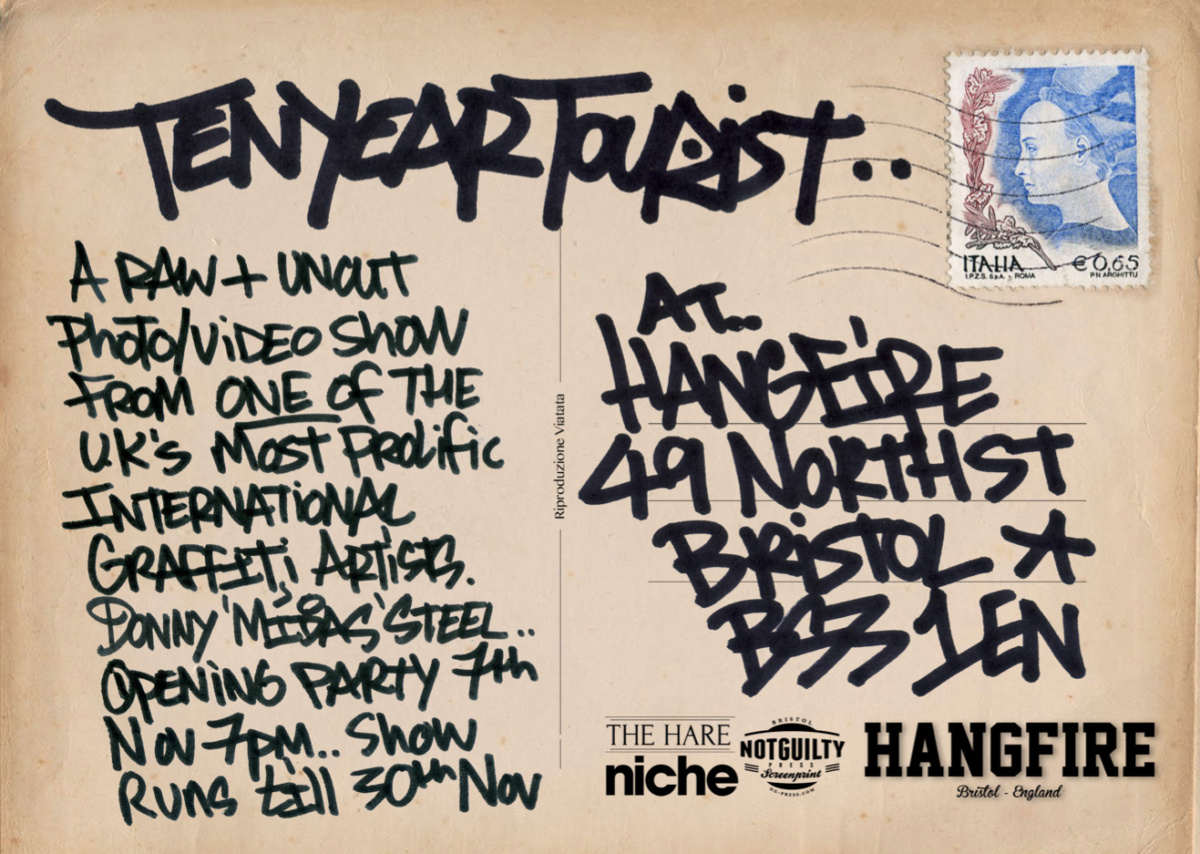 TEN YEAR TOURIST..
ITALIA €0,65
I.P.Z.S. S.p.A. - ROMA P.N ARGHITTU
A RAW + UNCUT
PHOTO/VIDEO SHOW
FROM ONE OF THE
U.K'S MOST PROLIFIC
INTERNATIONAL
GRAFFITI ARTISTS.
DONNY 'MIBAS' STEEL..
OPENING PARTY 7th
Nov 7pm.. Show
Runs till 30th Nov
Riproduzione Viatata
AT..
HANGFIRE
49 NORTH ST
BRISTOL
BS3 1EN
THE HARE
niche
BRISTOL
NOTGUILTY
PRESS
Screenprint
NG-PRESS.COM
HANGFIRE
Bristol - England